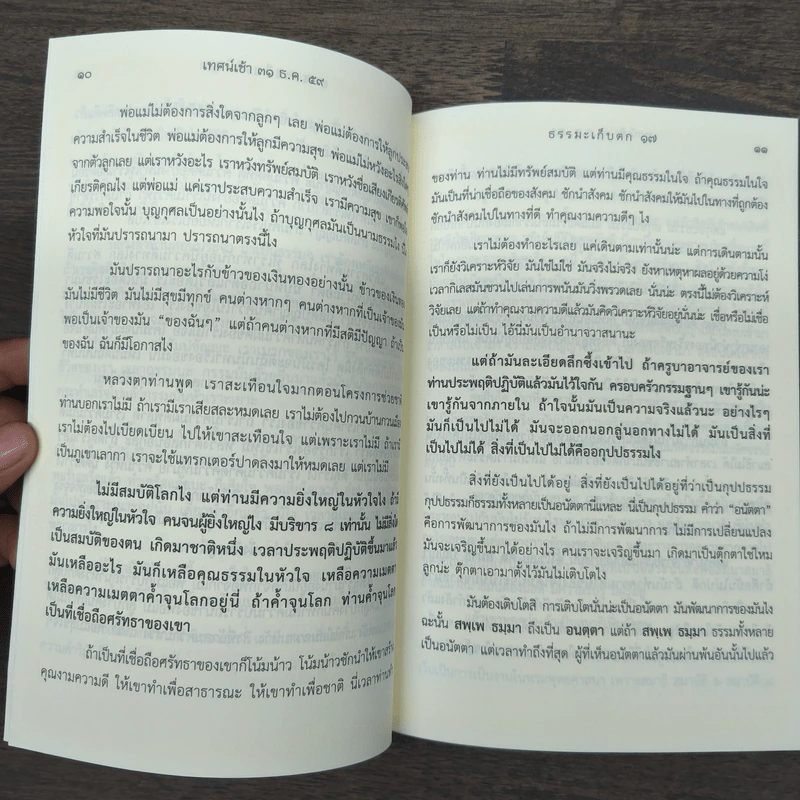 ๑๐
เทศน์เช้า ๓๑ ธ.ค. ๕๙
พ่อแม่ไม่ต้องการสิ่งใดจากลูกๆ เลย พ่อแม่ต้องการให้ลูกประสบ
ความสำเร็จในชีวิต พ่อแม่ต้องการให้ลูกมีความสุข พ่อแม่ไม่หวังอะไร
จากตัวลูกเลย แต่เราหวังอะไร เราหวังทรัพย์สมบัติ เราหวังชื่อเสียงเกียรติศัพท์
เกียรติคุณไง แต่พ่อแม่ แค่เราประสบความสำเร็จ เรามีความสุข เขาก็
ความพอใจนั้น บุญกุศลเป็นอย่างนั้นไง ถ้าบุญกุศลมันเป็นนามธรรมไง
หัวใจที่มันปรารถนามา ปรารถนาตรงนี้ไง
มันปรารถนาอะไรกับข้าวของเงินทองอย่างนั้น ข้าวของเงินทอง
มันไม่มีชีวิต มันไม่มีสุขมีทุกข์ คนต่างหากๆ คนต่างหากที่เป็นเจ้าของมัน
พอเป็นเจ้าของมัน “ของฉันๆ” แต่ถ้าคนต่างหากที่มีสติมีปัญญา ถ้าเป็น
ของฉัน ฉันก็มีโอกาสไง
หลวงตาท่านพูด เราสะเทือนใจมากตอนโครงการช่วยชาติ
ท่านบอกเราไม่มี ถ้าเรามีเราเสียสละหมดเลย เราไม่ต้องไปกวนบ้านกวนเมือง
เราไม่ต้องไปเบียดเบียน ไปให้เขาสะเทือนใจ แต่เพราะเราไม่มี ถ้าเรามี
เป็นภูเขาเลากา เราจะใช้แทรกเตอร์ปาดลงมาให้หมดเลย แต่เราไม่มี
ไม่มีสมบัติโลกไง แต่ท่านมีความยิ่งใหญ่ในหัวใจไง ถ้ามี
ความยิ่งใหญ่ในหัวใจ คนจนผู้ยิ่งใหญ่ไง มีบริขาร ๘ เท่านั้น ไม่มีสิ่งใด
เป็นสมบัติของตน เกิดมาชาติหนึ่ง เวลาประพฤติปฏิบัติขึ้นมาแล้ว
มันเหลืออะไร มันก็เหลือคุณธรรมในหัวใจ เหลือความเมตตา
เหลือความเมตตาค้ำจุนโลกอยู่นี่ ถ้าค้ำจุนโลก ท่านค้ำจุนโลก
เป็นที่เชื่อถือศรัทธาของเขา
ถ้าเป็นที่เชื่อถือศรัทธาของเขาก็โน้มน้าว โน้มน้าวชักนำให้เขาสร้าง
คุณงามความดี ให้เขาทำเพื่อสาธารณะ ให้เขาทำเพื่อชาติ นี่เวลาท่านทำ
ธรรมะเก็บตก ๑๗
๑๑
ของท่าน ท่านไม่มีทรัพย์สมบัติ แต่ท่านมีคุณธรรมในใจ ถ้าคุณธรรมในใจ
มันเป็นที่น่าเชื่อถือของสังคม ชักนำสังคม ชักนำสังคมให้มันไปในทางที่ถูกต้อง
ชักนำสังคมไปในทางที่ดี ทำคุณงามความดีๆ ไง
เราไม่ต้องทำอะไรเลย แค่เดินตามเท่านั้นน่ะ แต่การเดินตามนั้น
เราก็ยังวิเคราะห์วิจัย มันใช่ไม่ใช่ มันจริงไม่จริง ยังหาเหตุหาผลอยู่ด้วยความโง่
เวลากิเลสมันชวนไปเล่นการพนันมันวิ่งพรวดเลย นั่นน่ะ ตรงนี้ไม่ต้องวิเคราะห์
วิจัยเลย แต่ถ้าทำคุณงามความดีแล้วมันคิดวิเคราะห์วิจัยอยู่นั่นน่ะ เชื่อหรือไม่เชื่อ
เป็นหรือไม่เป็น ไอ้นี่มันเป็นอำนาจวาสนานะ
แต่ถ้ามันละเอียดลึกซึ้งเข้าไป ถ้าครูบาอาจารย์ของเรา
ท่านประพฤติปฏิบัติแล้วมันไว้ใจกัน ครอบครัวกรรมฐานๆ เขารู้กันน่ะ
เขารู้กันจากภายใน ถ้าใจนั้นมันเป็นความจริงแล้วนะ อย่างไรๆ
มันก็เป็นไปไม่ได้ มันจะออกนอกลู่นอกทางไม่ได้ มันเป็นสิ่งที่
เป็นไปไม่ได้ สิ่งที่เป็นไปไม่ได้คืออกุปปธรรมไง
สิ่งที่ยังเป็นไปได้อยู่ สิ่งที่ยังเป็นไปได้อยู่ที่ว่าเป็นกุปปธรรม
กุปปธรรมก็ธรรมทั้งหลายเป็นอนัตตานี่แหละ นี่เป็นกุปปธรรม คำว่า “อนัตตา”
คือการพัฒนาการของมันไง ถ้าไม่มีการพัฒนาการ ไม่มีการเปลี่ยนแปลง
มันจะเจริญขึ้นมาได้อย่างไร คนเราจะเจริญขึ้นมา เกิดมาเป็นตุ๊กตาใช่ไหม
ลูกน่ะ ตุ๊กตาเอามาตั้งไว้มันไม่เติบโตไง
มันต้องเติบโตสิ การเติบโตนั่นน่ะเป็นอนัตตา มันพัฒนาการของมันไง
ฉะนั้น สพฺเพ ธมฺมา ถึงเป็น อนตฺตา แต่ถ้า สพฺเพ ธมฺมา ธรรมทั้งหลาย
เป็นอนัตตา แต่เวลาทำถึงที่สุด ผู้ที่เห็นอนัตตาแล้วมันผ่านพ้นอันนั้นไปแล้ว